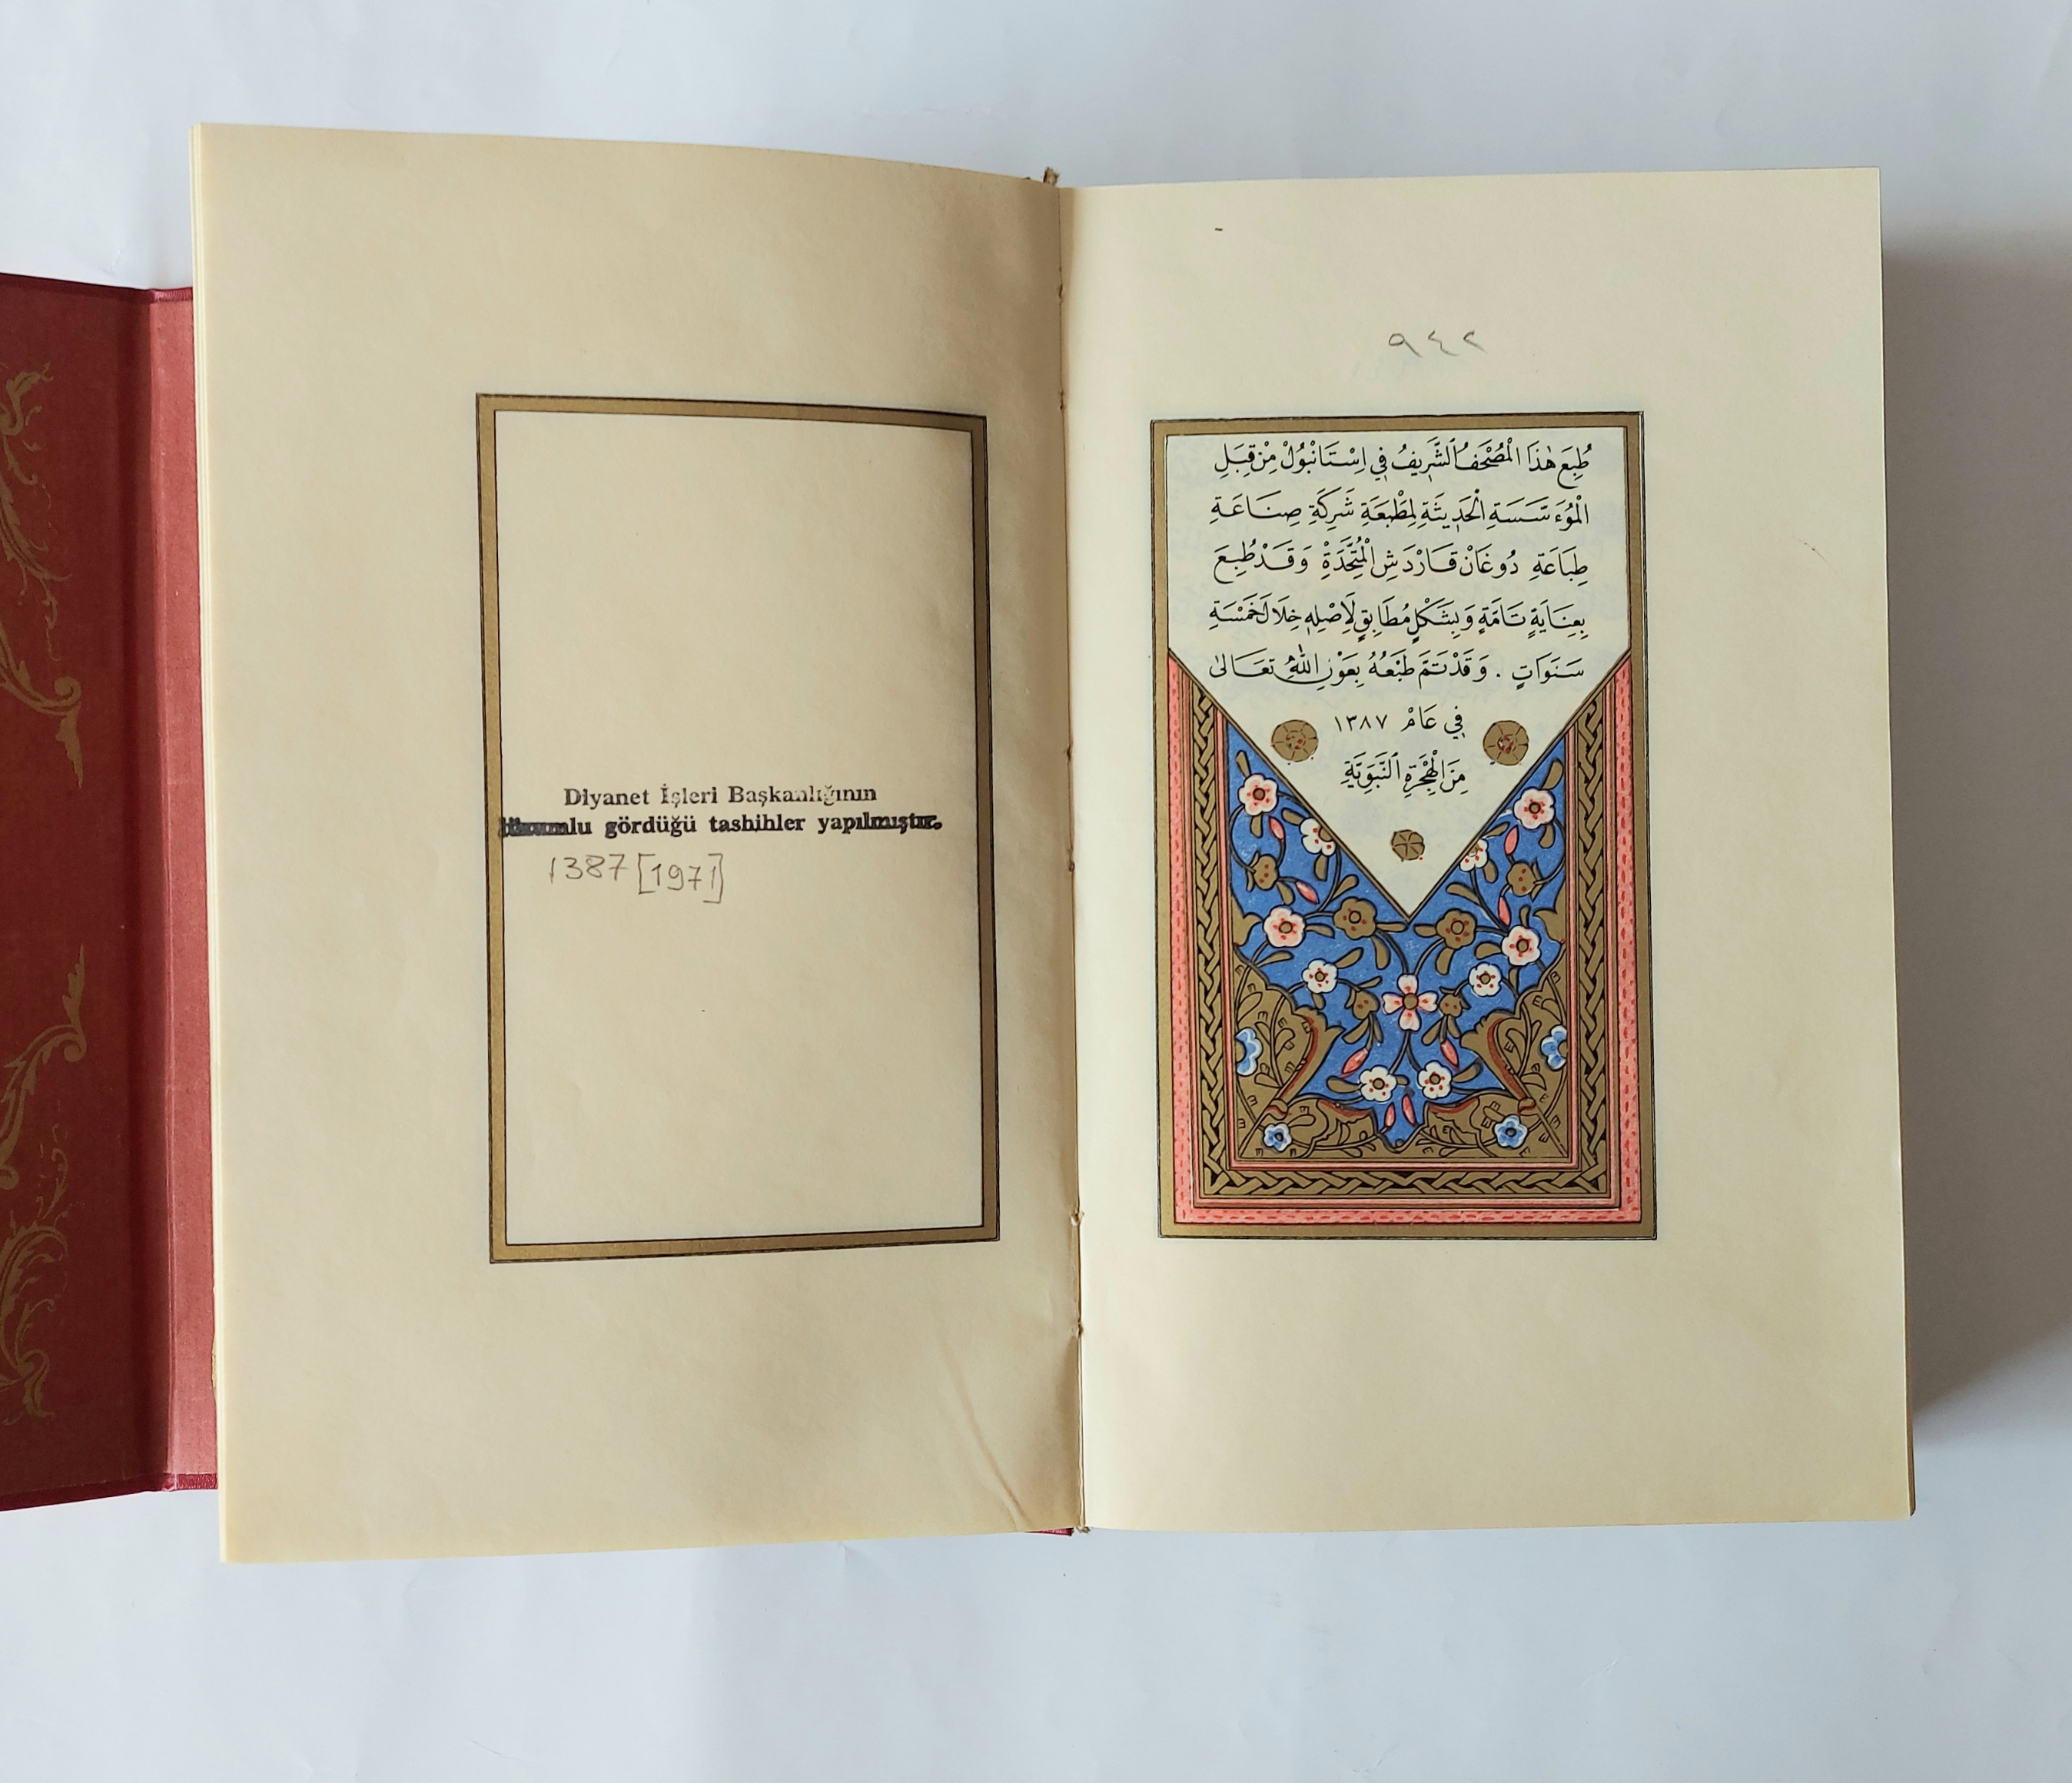 Diyanet İşleri Başkanlığının
lüzumlu gördüğü tashihler yapılmıştır.
1387 [1971]
٩٤٢
طُبِعَ هٰذَا الْمُصْحَفُ الشَّرِيفُ فِي اِسْتَانْبُولْ مِنْ قِبَلِ
الْمُوءَسَّسَةِ الْحَدِيثَةِ لِمَطْبَعَةِ شَرِكَةِ صِنَاعَةِ
طِبَاعَةِ دُوغَانْ قَارْدَشِ الْمُتَّحَدَةْ وَقَدْ طُبِعَ
بِعِنَايَةٍ تَامَّةٍ وَبِشَكْلٍ مُطَابِقٍ لِاَصْلِهِ خِلَالَ خَمْسَةِ
سَنَوَاتٍ . وَقَدْ تَمَّ طَبْعُهُ بِعَوْنِ اللّٰهِ تَعَالىٰ
فِي عَامْ ١٣٨٧
مِنَ الْهِجْرَةِ النَّبَوِيَّةِ